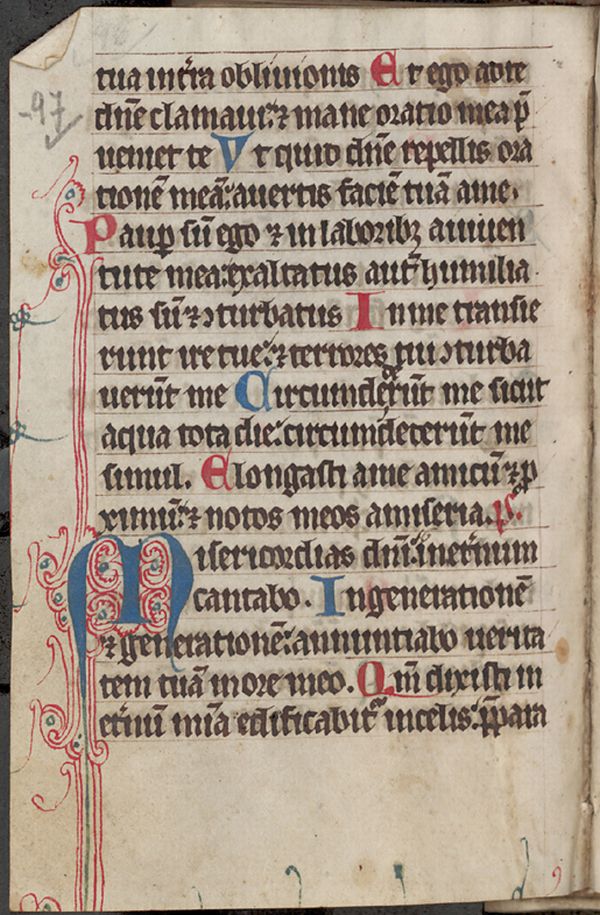 -97
tua int̄ra obliuionis Et ego ad te
dn̄e clamaui: ⁊ mane oratio mea p̄
ueniet te Vt quid dn̄e repellis ora
tionē meā: auertis faciē tuā a me.
Paup̱ sū ego ⁊ in laboribꝫ a iuuen
tute mea: exaltatus aut̄ humilia
tus sū ⁊ ↄturbatus In me transie
runt ire tue: ⁊ terrores tui ↄturba
uerūt me Circumdederūt me sicut
aqua tota die: circumdederūt me
simul. Elongasti a me amicū ⁊ p
ximū: ⁊ notos meos a miseria. ps̄.
Misericordias dn̄i: in et̄num
cantabo. In generationē
⁊ generationē: annuntiabo uerita
tem tuā in ore meo. Qm̄ dixisti in
et̄nū mīa edificabit̄ in celis: p̄para